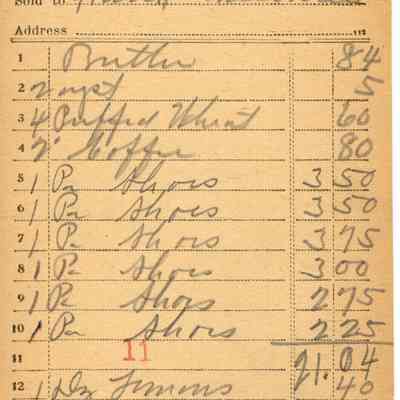 Sold to
Address
1 Butter 84
2 2 5
3 4 Puffed Wheat 60
4 2 Coffee 80
5 1 Pr Shoes 3 50
6 1 Pr Shoes 3 50
7 1 Pr Shoes 3 75
8 1 Pr Shoes 3 00
9 1 Pr Shoes 2 75
10 1 Pr Shoes 2 25
11 11 21.04
12 1 Dz Lemons 40